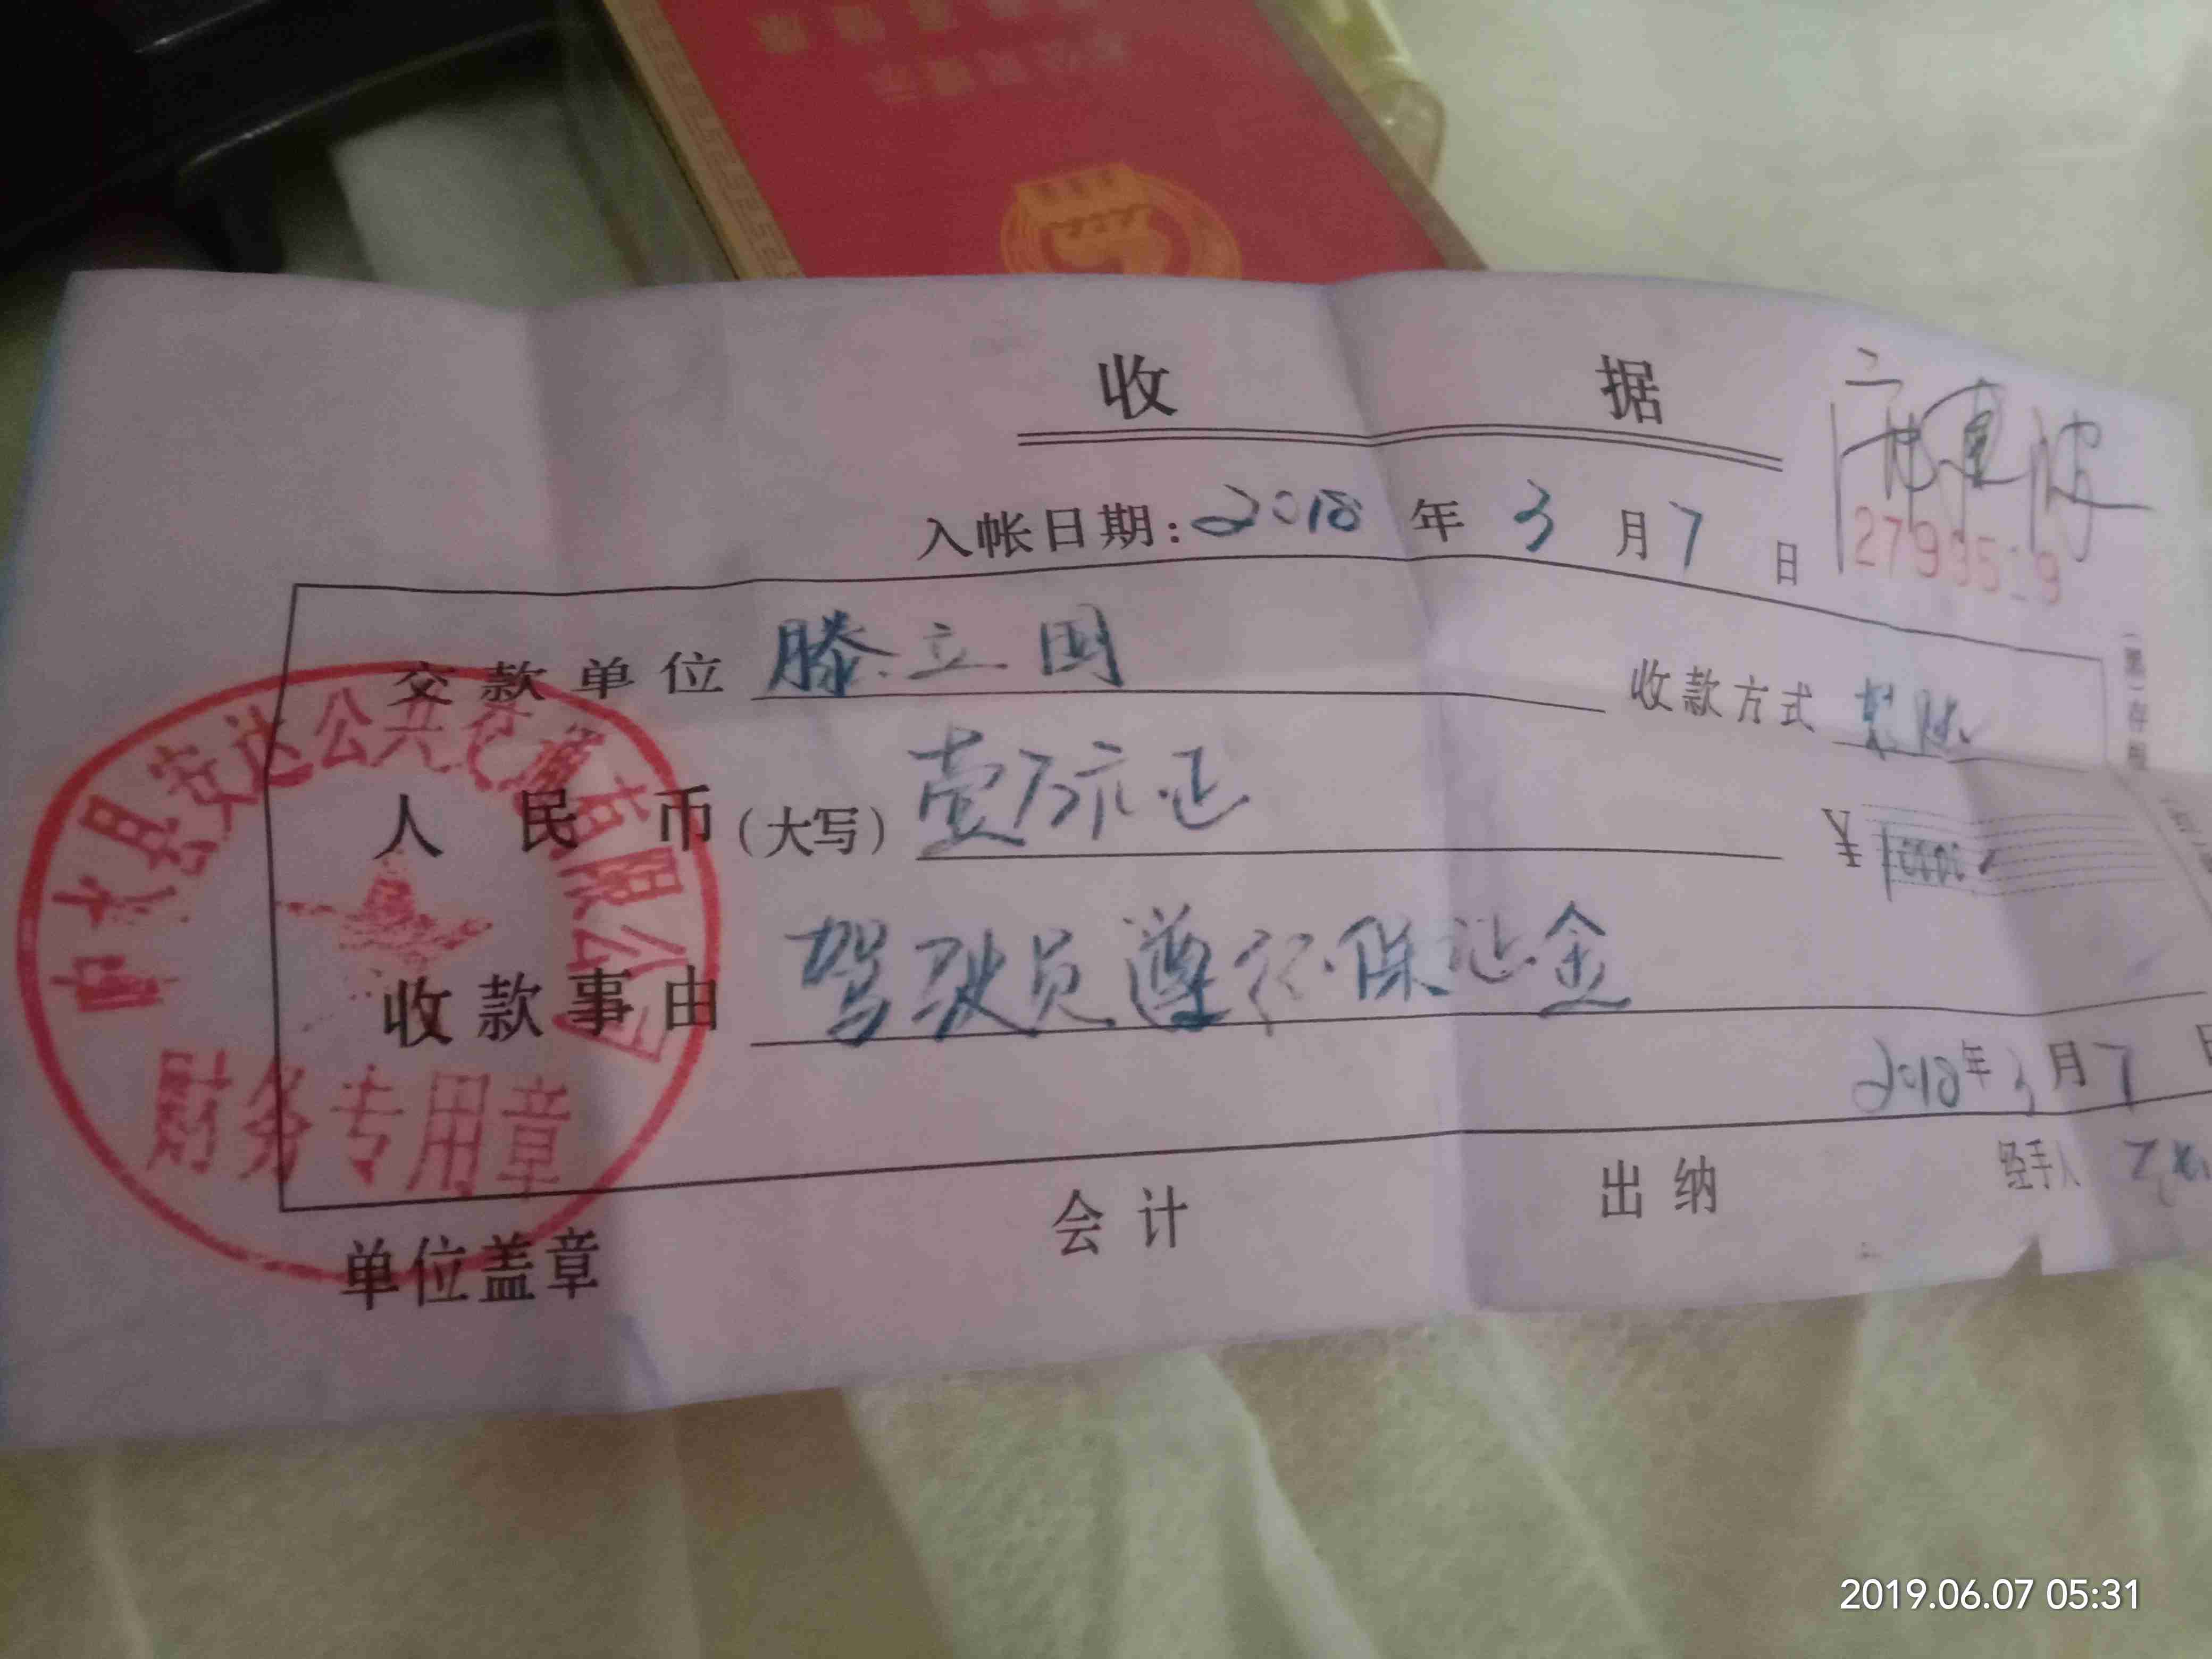 收 据
入帐日期: 2018 年 3 月 7 日
交款单位 滕立国 收款方式
人民币(大写) 壹万元正 ¥ 10000
收款事由 驾驶员遵行保证金
2018年3月7日
单位盖章 会计 出纳 经手人
安达公共交通有限公司
财务专用章
2019.06.07 05:31